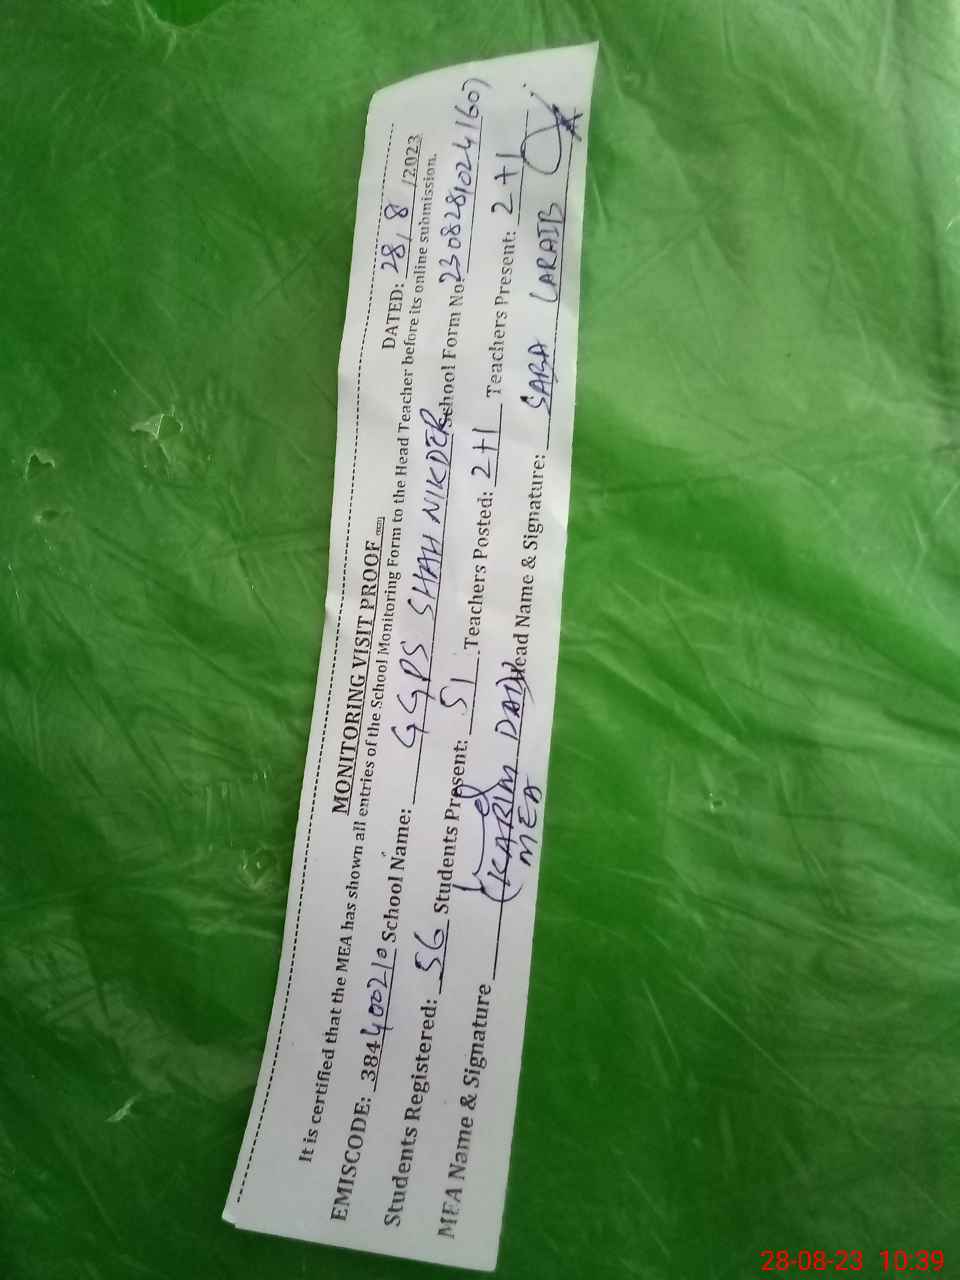 MONITORING VISIT PROOF
DATED: 28, 8 /2023
It is certified that the MEA has shown all entries of the School Monitoring Form to the Head Teacher before its online submission.
EMISCODE: 38440021 School Name: GGPS SHAH NIKDER School Form No: 23082810241607
Students Registered: 56 Students Present: 51 Teachers Posted: 2+1 Teachers Present: 2+1
MEA Name & Signature (KARIM DAD) Head Name & Signature: SARA LARAIB
MEA
28-08-23 10:39